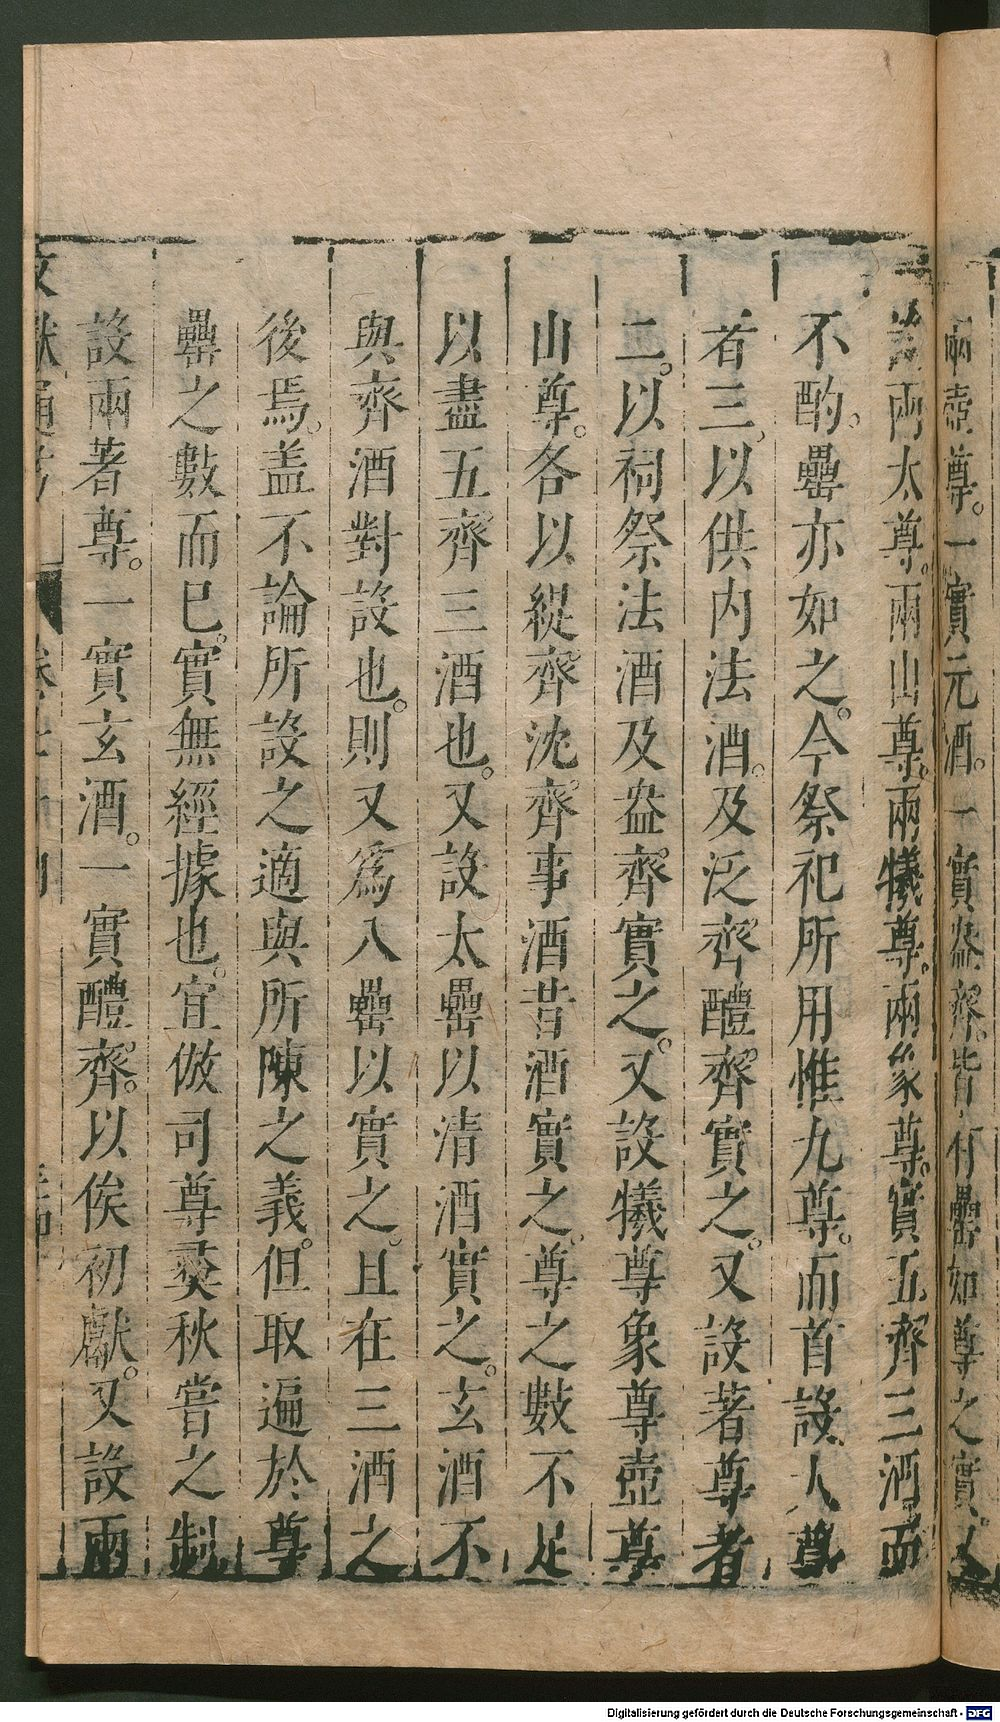 兩壺尊。一實元酒。一實盎齊。皆有罍如尊之實。又
設兩太尊。兩山尊。兩犧尊。兩象尊。實五齊三酒而
不酌。罍亦如之。今祭祀所用惟九尊。而首設大尊
者三。以供内法酒。及泛齊醴齊實之。又設著尊者
二。以祠祭法酒及盎齊實之。又設犧尊象尊壺尊
山尊。各以緹齊沈齊事酒昔酒實之。尊之數不足
以盡五齊三酒也。又設太罍以清酒實之。玄酒不
與齊酒對設也。則又爲八罍以實之。且在三酒之
後焉。盖不論所設之適與所陳之義。但取遍於尊
罍之數而已。實無經據也。宜倣司尊彝秋嘗之制
設兩著尊。一實玄酒。一實醴齊。以俟初獻。又設兩
文獻通考 卷
Digitalisierung gefördert durch die Deutsche Forschungsgemeinschaft - DFG